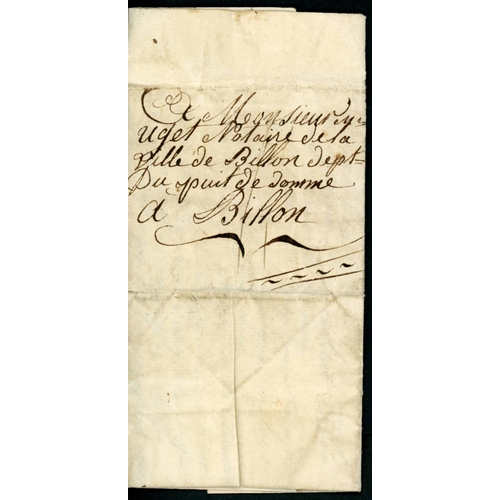 A Monsieur
uget Notaire de la
ville de Billon dept
Du puit de domme
A Billon